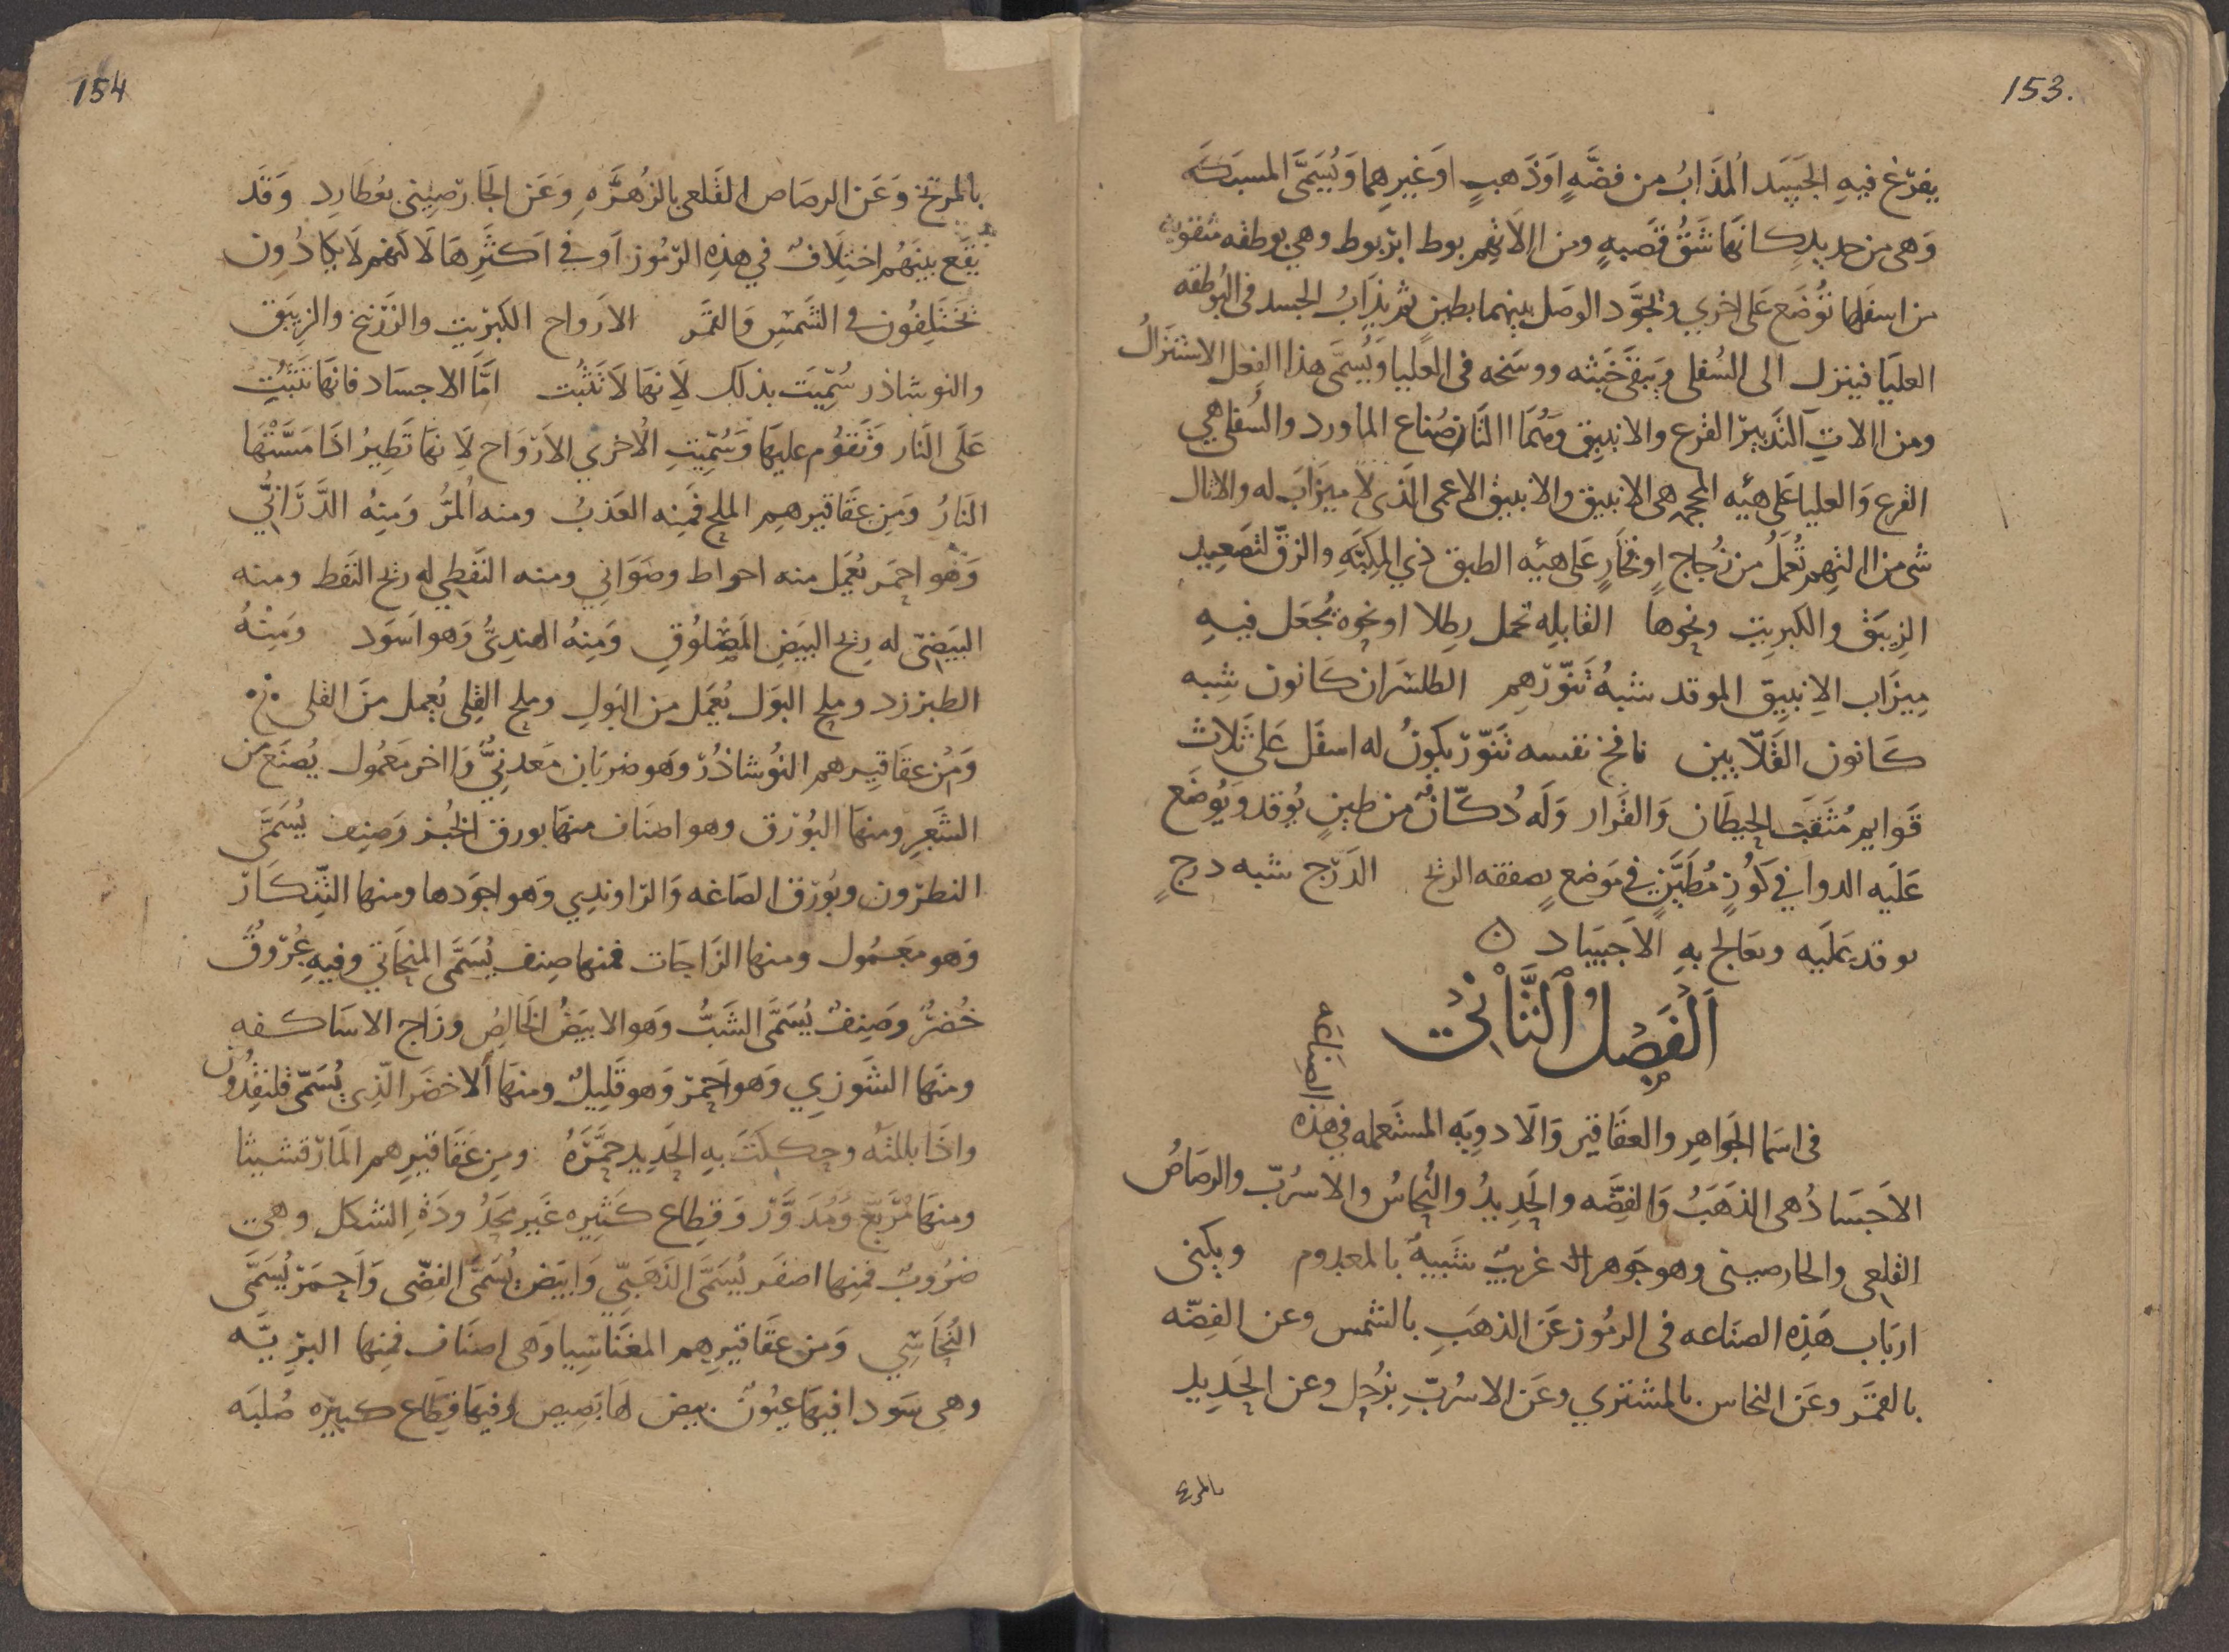 153.
يفرّغ فيه الجَسَد المُذَابُ من فضّةٍ اَوذَهبٍ اوَغيرِهما وَيُسَمَّى المسبَكَه
وَهى من حديدٍ كانهَا شَقُّ قَصَبهٍ ومن الالاتهِم بوط ابر بوط وهي بوطقه مثقوبه
من اسفَلها تُوضَع عَلى اخري ويجَوَّد الوصَل بينهما بطين ثم يذَابُ الجسد فى البُوطقه
العليَا فينزل الى السُفلى وَيبقَى خَبَثه ووسَخه فى العليا وَيُسمَّى هذا الفِعل الاستنزَالُ
ومن الالاتِ التَدبيرّ القرع والانبيق وهُمَا التان صُناع الماورد والسُفلى هي
القرع وَالعليا عَلى هيئه المحجمه هى الانبيق والانبيق الاعمى الذى لا ميزَابَ له والاثال
شى من الاتهم تُعمَلُ من زُجاجٍ اوفخَارٍ عَلى هيئه الطبق ذي المِكبَّهِ والزقّ لتصَعيد
الزِيبَق والكبريتِ ونحوها القابلِه تحمل رِطلا اونحوه يُجعَل فيهِ
مِيزَاب الاِنبيق الموقد شبهُ تَنّورّهم الطلشران كانون شِبه
كَانون القَلّايين نافخ نفسه تَنوّرّ يكونُ له اسفَل عَلى ثَلاث
قَوايم مُثَقَبَ الحيطَان وَالقَرار وَلَه دُكّانٌ من طينٍ يُوقد وَيُوضَع
عَليَه الدوا في كوُزٍ مُطَيَّنٍ في مَوضعٍ يصفقه الريح الدَرّج شبه درجٍ
يوقد عَليَه ويعَالج بهِ الاَجسَاد ٥
اَلْفَصْلُ الثَّانِيْ
فى اسَما الجَواهِر والعقَاقير وَالاَدوِيَه المستَعمله في هَذه
الصِنَاعَه
الاَجسَادُ هى الذهَبَُ وَالفِضَّه والحَدِيدُ والنُحاسُ والاسرُبّ والرصَاصُ
القلعى والخارصينى وهو جَوهرٌ غريبٌ شَبيهٌ بالمعدوم ويكنى
اربَاب هَذِه الصنَاعه فى الرمُوز عَن الذهَبِ بالشمس وعن الفِضّه
بالقمَر وعَن النحاس بالمشتري وعَن الاسرُبّ بزُحل وعن الحَدِيد
بالمريخ
154
بالمرّيخ وَعَن الرصَاص القَلعى بالزُهَرَهِ وَعَن الخَارّصِينى بعُطَارِد وَقَد
يَقَع بينَهُم اختِلَافٌ في هذِه الرّمُوز اَو في اَكثَرِهَا لَا لكنهم لَا يكادُون
يَختَلِفُون فى الشَمِس وَالقَمَر الاَرواح الكبرّيت والزرّنيخ والزِيبَق
والنوشاذر سُمِّيَت بذلك لاَِنهَا لاَ تَثبُت امَّا الاجسَاد فانهَا تَثبُتِ
عَلَى النَار وَتَقوُم عليهَا وَسُمِّيَتِ الاُخري الاَرّوَاح لاَِنهَا تَطِيرُ اذَا مَسَّتْهَا
النَارُ وَمَن عَقَاقيرهِم الملح فَمِنه العَذبُ ومنه المُرُّ وَمَنِهُ الدَّرَّانيُّ
وَهُو احمَر يُعمَل منه احواط وصَوَاني ومنه النَفطي له ريح النَفط ومنه
البَيَضىّ له رِيح البيَضِ المَصْلوُقِ وَمِنهُ الهندِىُّ وَهو اَسوَد وَمِنْهُ
الطبرزد وملح البوَل يُعمَل من البَولِ وملح القِلى يُعمل منَ القلى
وَمُن عقَاقيِرهم النُوشاذُرّ وَهو ضربَان مَعدنِيٌّ وَاخر معَمُول يُصنَع من
الشَعَرِ ومنهَا البُوْرَق وهو اصنَاف منهَا بورق الخُبز وَصنِف يُسَمَّى
النطرّون وبُورّق الصَاغه وَالرّاوندِي وَهو اجوَدها ومنها التِّنكَارّ
وَهو معَمُول ومنها الزَاجَات فمنها صِنف يُسَمَّى المنحَاتي وفيهِ عُرّوُقٌ
خُضرٌ وصَنِفٌ يُسَمَّى الشَبُّ وَهو الابيَضُ الخَالِصُ وزَاج الاسَاكفه
ومنَها الشَورِي وَهو اَحمرّ وَهو قَليِلٌ ومنهَا اَلاخضَر الّذِي يُسَمّى قلنقِدُون
واذَا بللتَه وحككَتَ بهِ الحَدِيد حَمَّرَهُ ومِن عَقَاقيرِهم المَارّقشيثا
ومنهَا مُرَبّع وَمُدَوَّرّ وَقِطاع كثيِره غَير محَدُودَةِ الشكل وهي
ضرُوبٌ فمِنها اصفَر يُسَمَّى الذَهَبّي وَابيَض يُسَمَّى الفضّى وَاَحمَرّ يُسَمَّى
النُحَاسّي وَمن عقَاقيِرهم المغَنَاسِيا وَهى اصنَاف فمِنها الترِبيَّه
وهى سَودا فيهَا عيُونٌ بيض لهَا بَصِيص وفيهَا قِطَاع كبيرَه صُلبَه